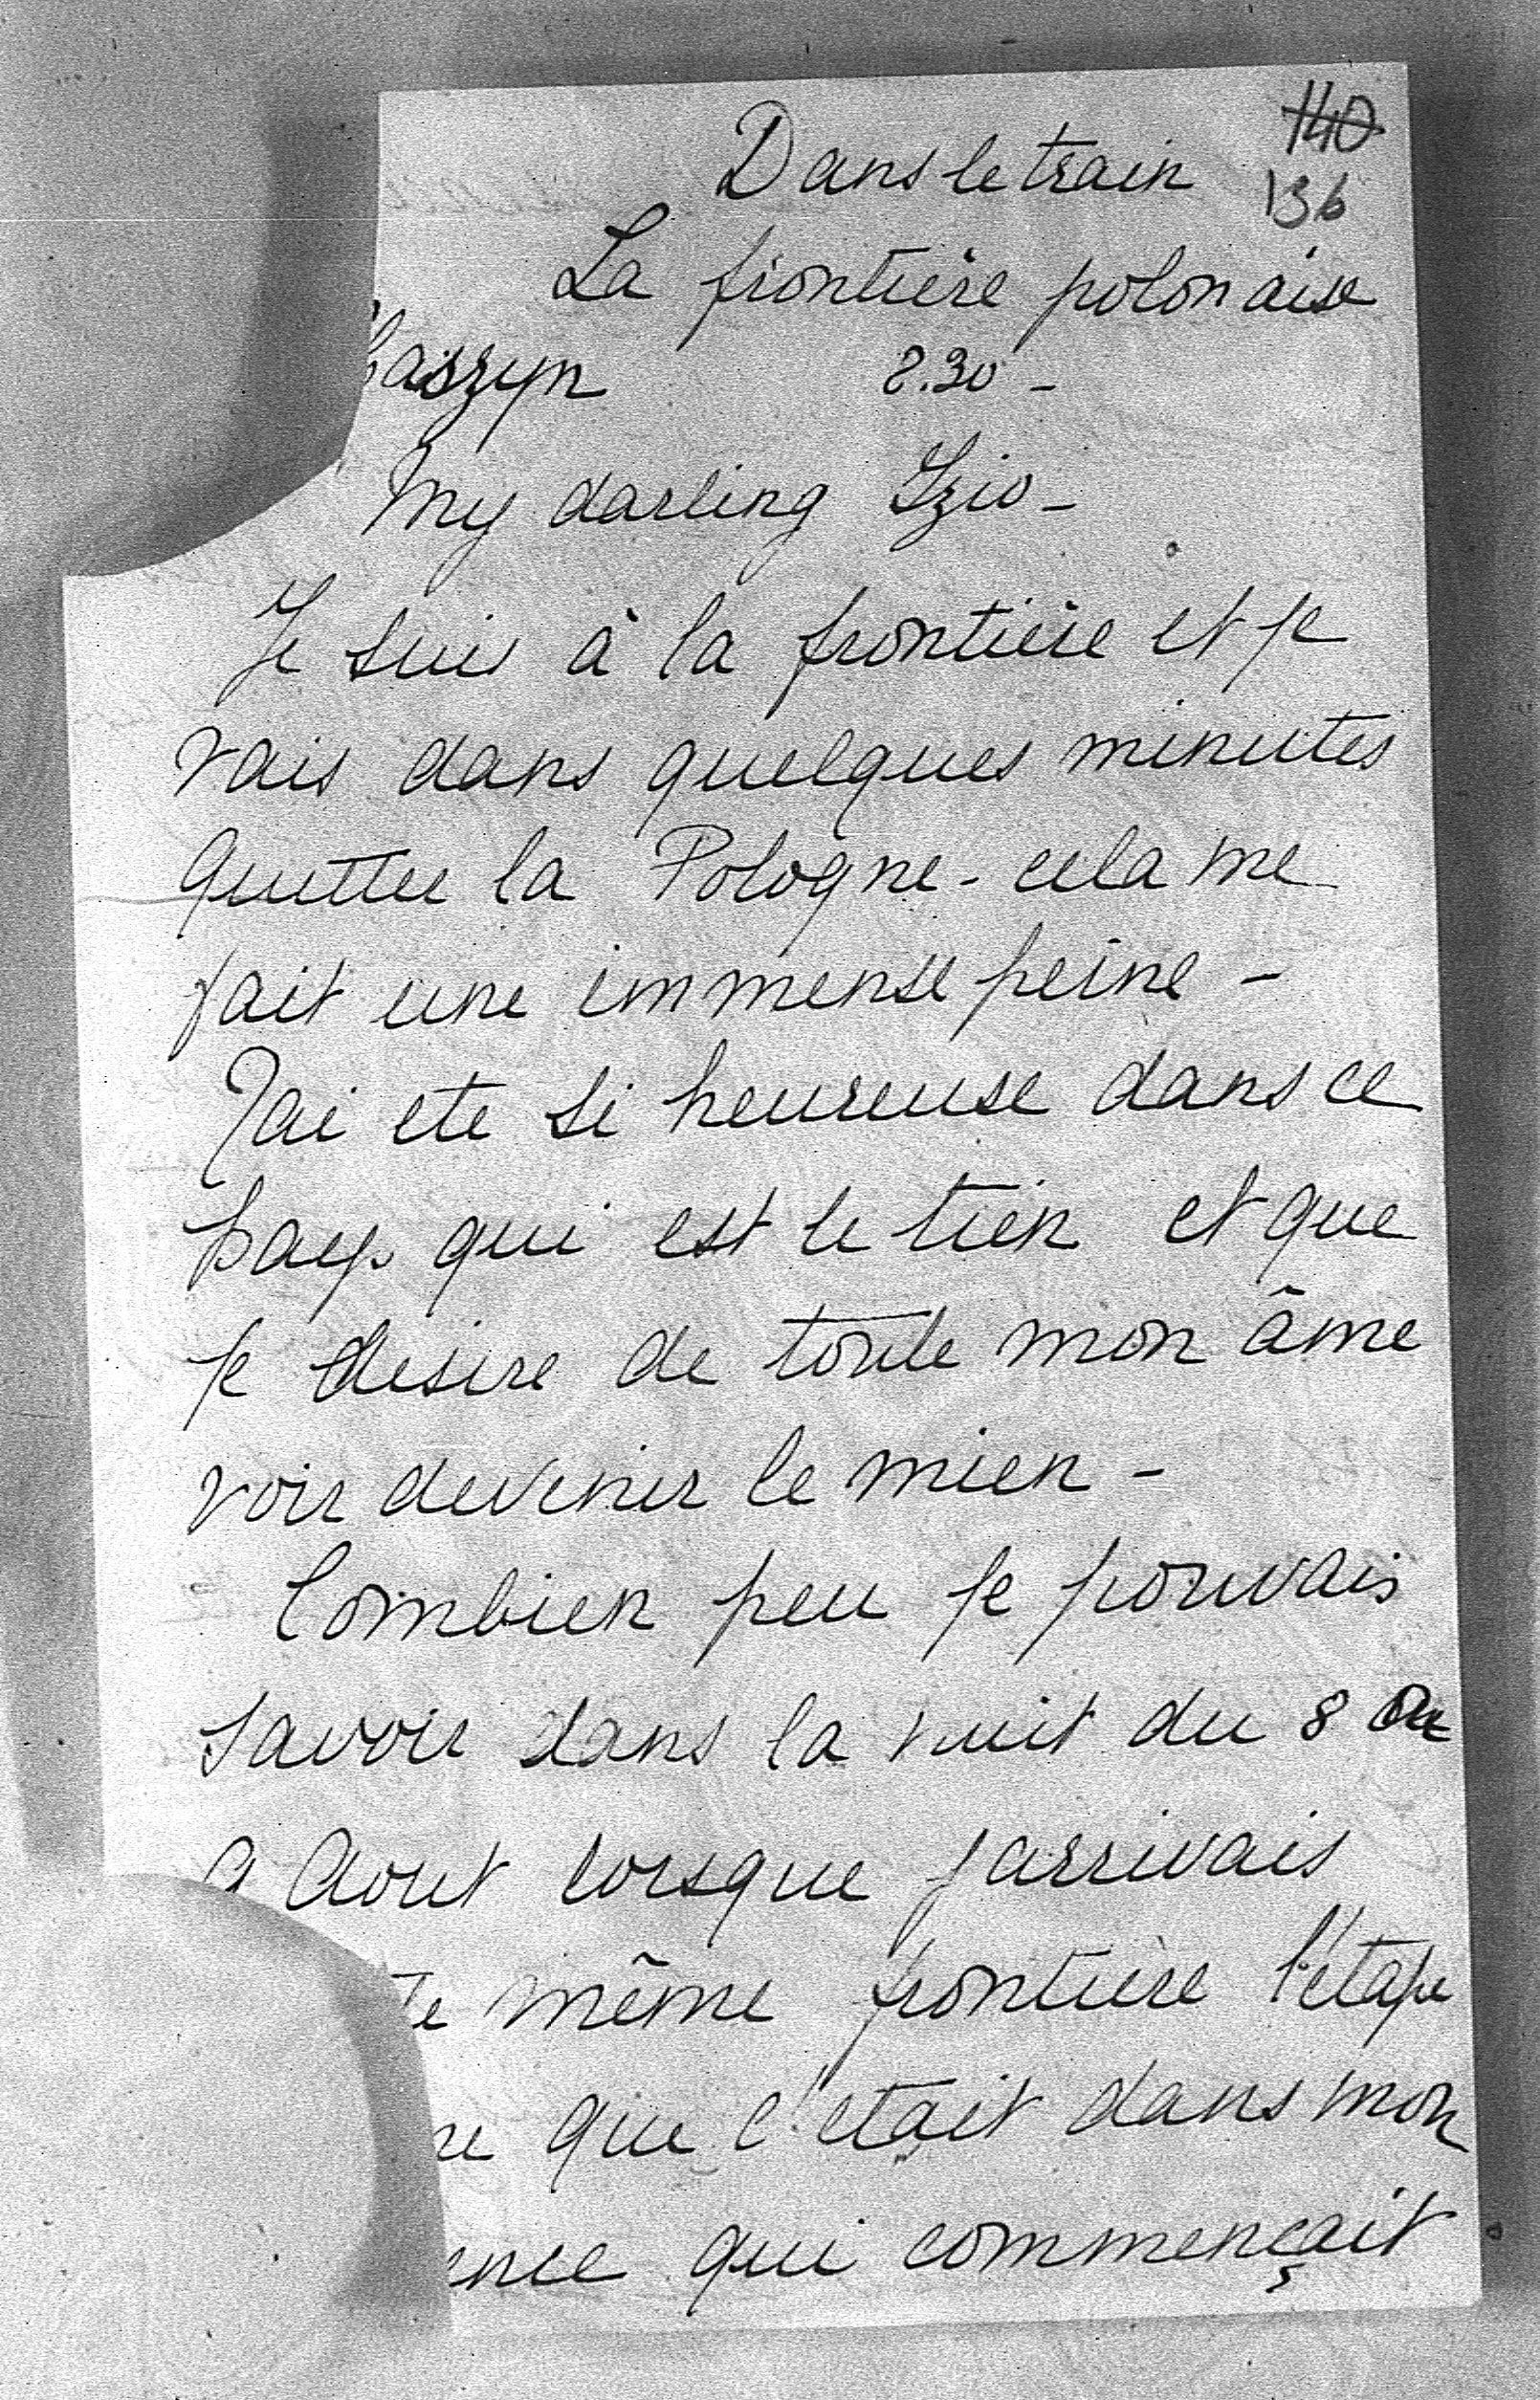 140
136
Dans le train
La frontière polonaise
baszyn 8.30 -
My darling Izio -
Je suis à la frontière et je
vais dans quelques minutes
quitter la Pologne - cela me
fait une immense peine -
J'ai ete si heureuse dans ce
pays qui est le tien et que
je desire de toute mon âme
voir devenir le mien -
Combien peu je pouvais
savoir dans la nuit du 8 au
9 Aout lorsque j'arrivais
te même frontière l'étape
re que c'etait dans mon
ence qui commençait